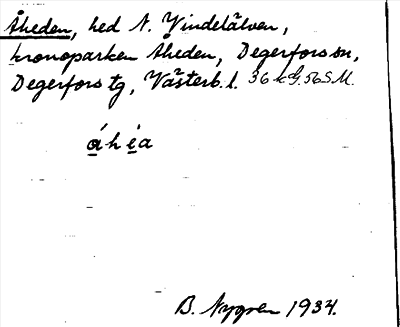 Åheden, hed N. Vindelälven,
kronoparken Åheden, Degerfors sn,
Degerfors tg, Västerb. l. 36 k S.M.
á h é a
B. Nygren 1934.